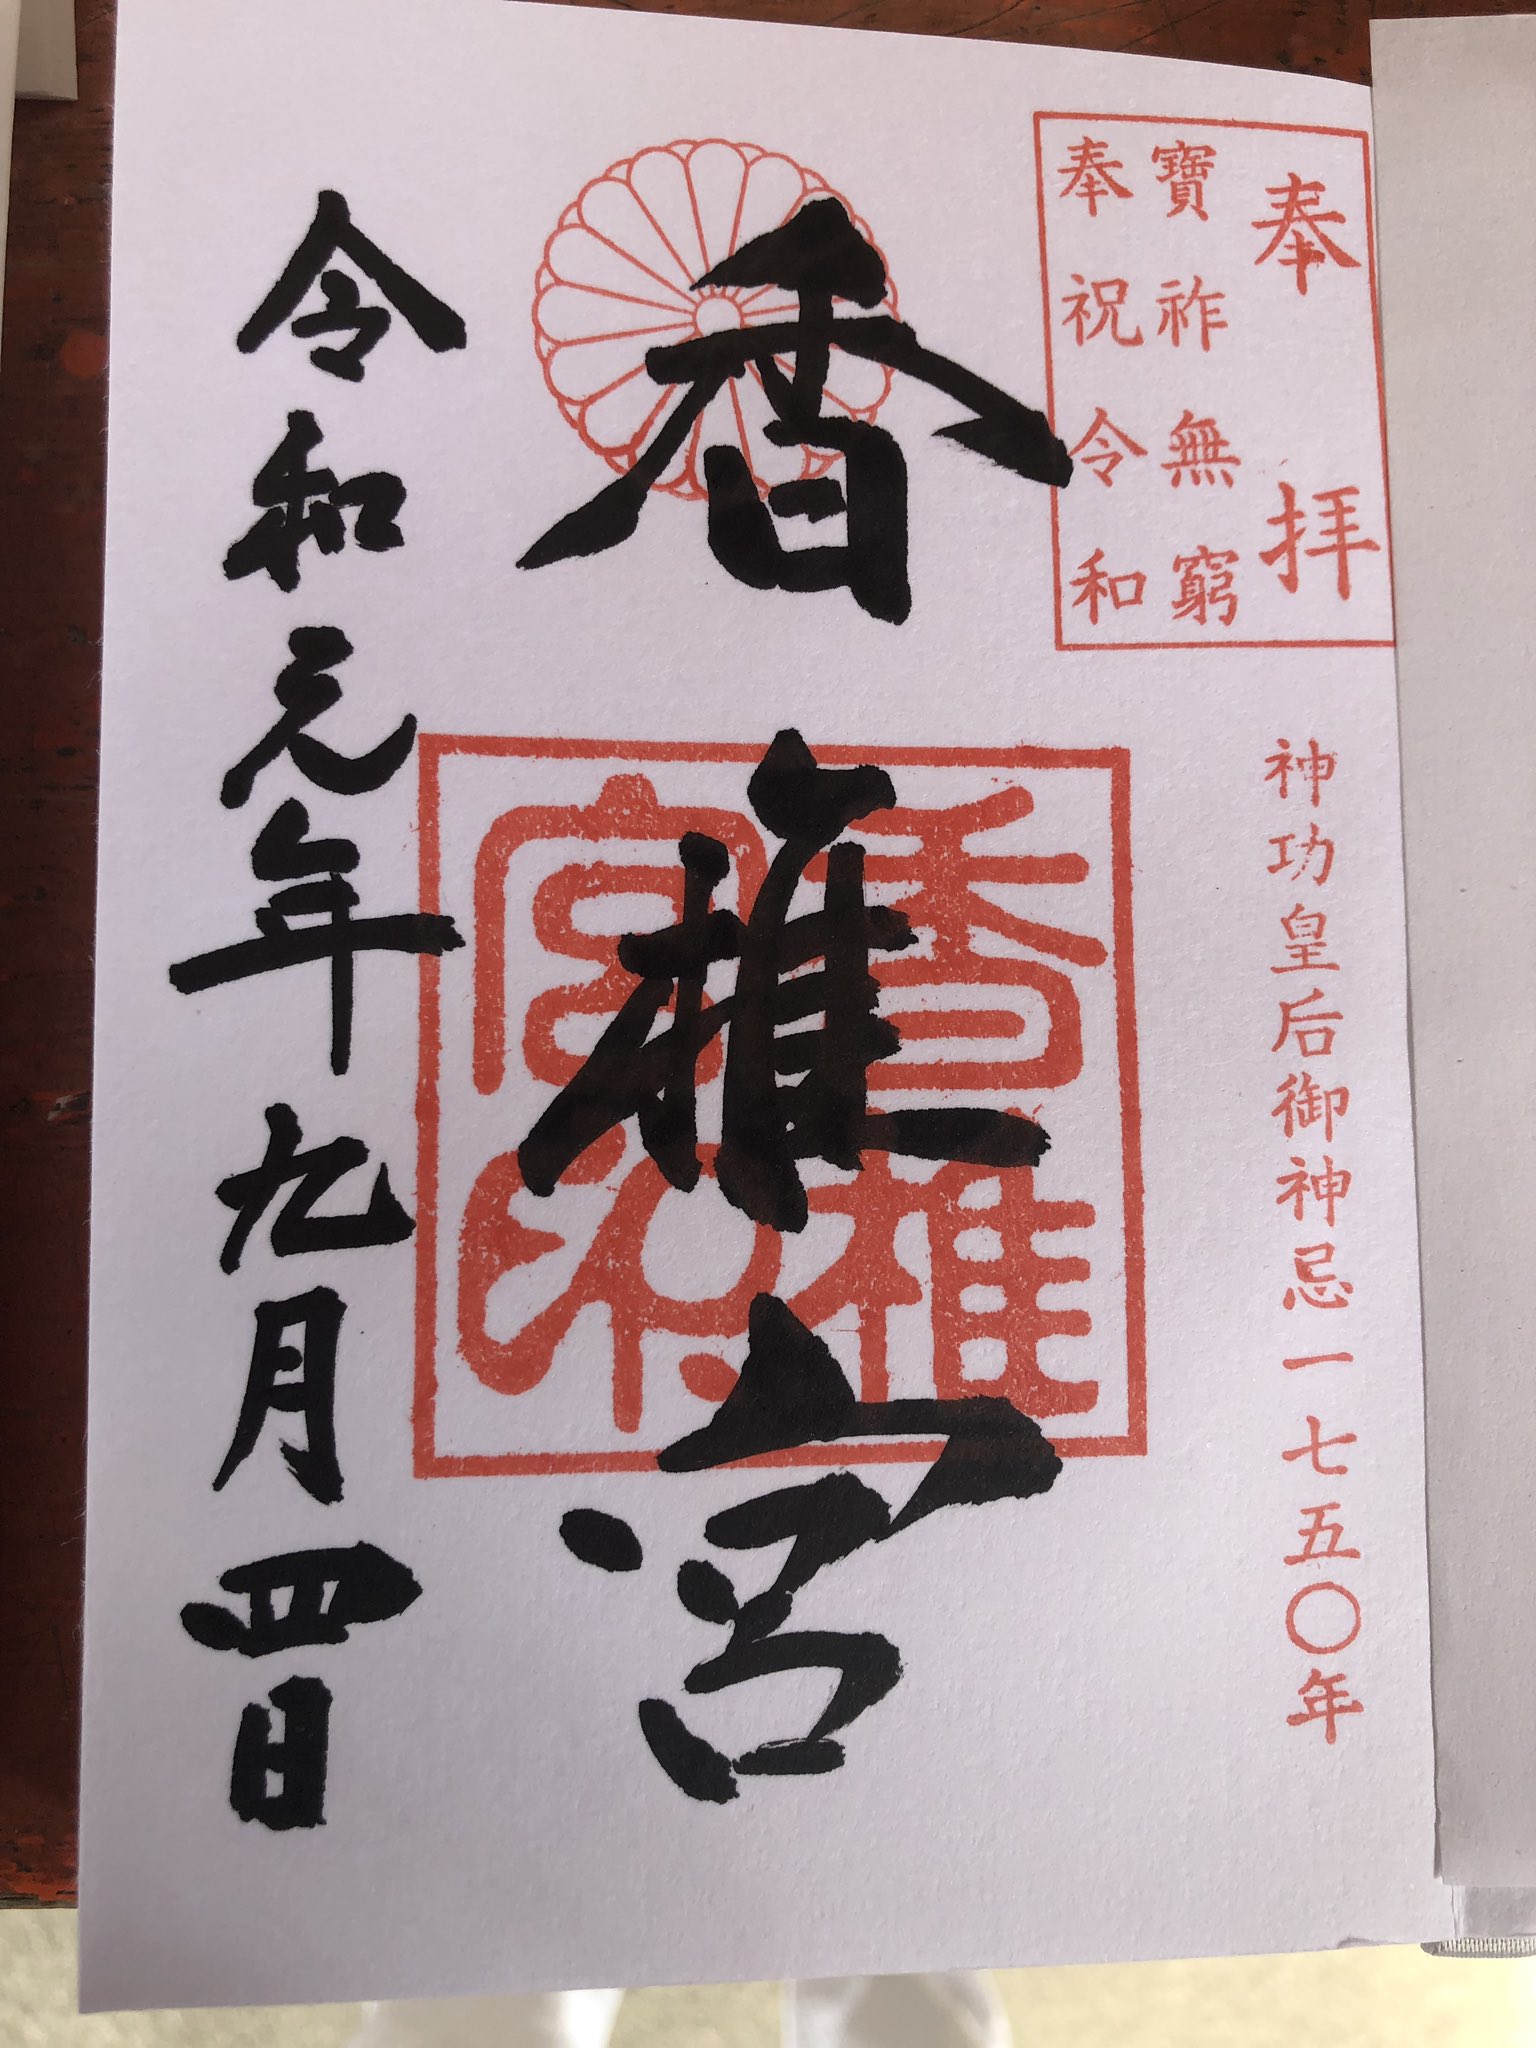 奉拝
寶祚無窮
奉祝令和
神功皇后御神忌一七五〇年
香椎宮
香椎宮印
令和元年九月四日